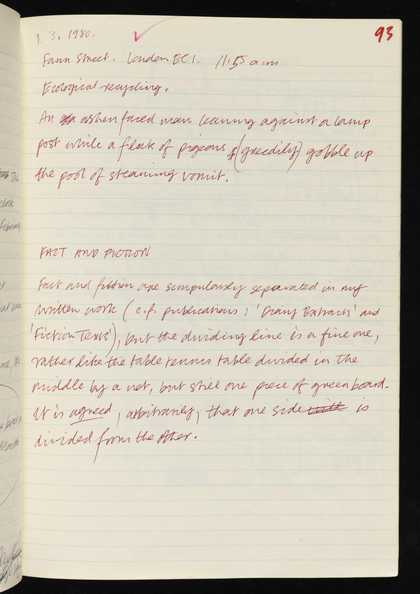 93
1. 3. 1980.
Fann Street. London EC1. 11.55 a.m
Ecological-recycling.
An ashen faced man leaning against a lamp
post while a flock of pigeons (greedily) gobble up
the pool of steaming vomit.
FACT AND FICTION
Fact and fiction are scrupulously separated in my
written work (c.f. publications: 'Diary Extracts' and
'Fiction Texts'), but the dividing line is a fine one,
rather like the table tennis table divided in the
middle by a net, but still one piece of green board.
It is agreed, arbitrarily, that one side is
divided from the other.